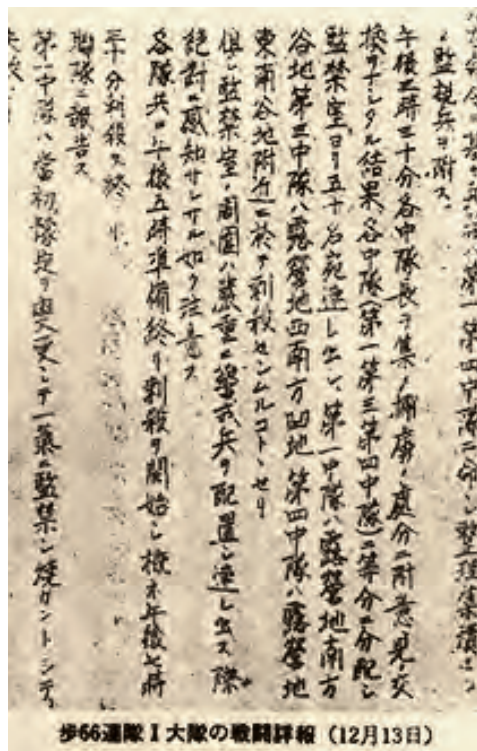 第一第四中隊ニ命シ整理集積セシ
メ監視兵ヲ附ス
午後三時三十分各中隊長ヲ集メ捕虜ノ處分ニ附意見交
換ヲナシタル結果各中隊(第一第三第四中隊)ニ等分ニ分配シ
監禁室ヨリ五十名宛連レ出シ、第一中隊ハ露營地南方
谷地第三中隊ハ露營地西南方凹地第四中隊ハ露營地
東南谷地附近ニ於テ刺殺セシムルコトヽセリ
但シ監禁室ノ周圍ハ嚴重ニ警戒兵ヲ配置シ連レ出ス際
絶對ニ感知サレサル如ク注意ス
各隊共ニ午後五時準備終リ刺殺ヲ開始シ概ネ午後七時
三十分刺殺ヲ終リ
聯隊ニ報告ス
第一中隊ハ當初豫定ヲ變更シテ一氣ニ監禁シ焼カントシテ
歩66連隊I大隊の戦闘詳報(12月13日)